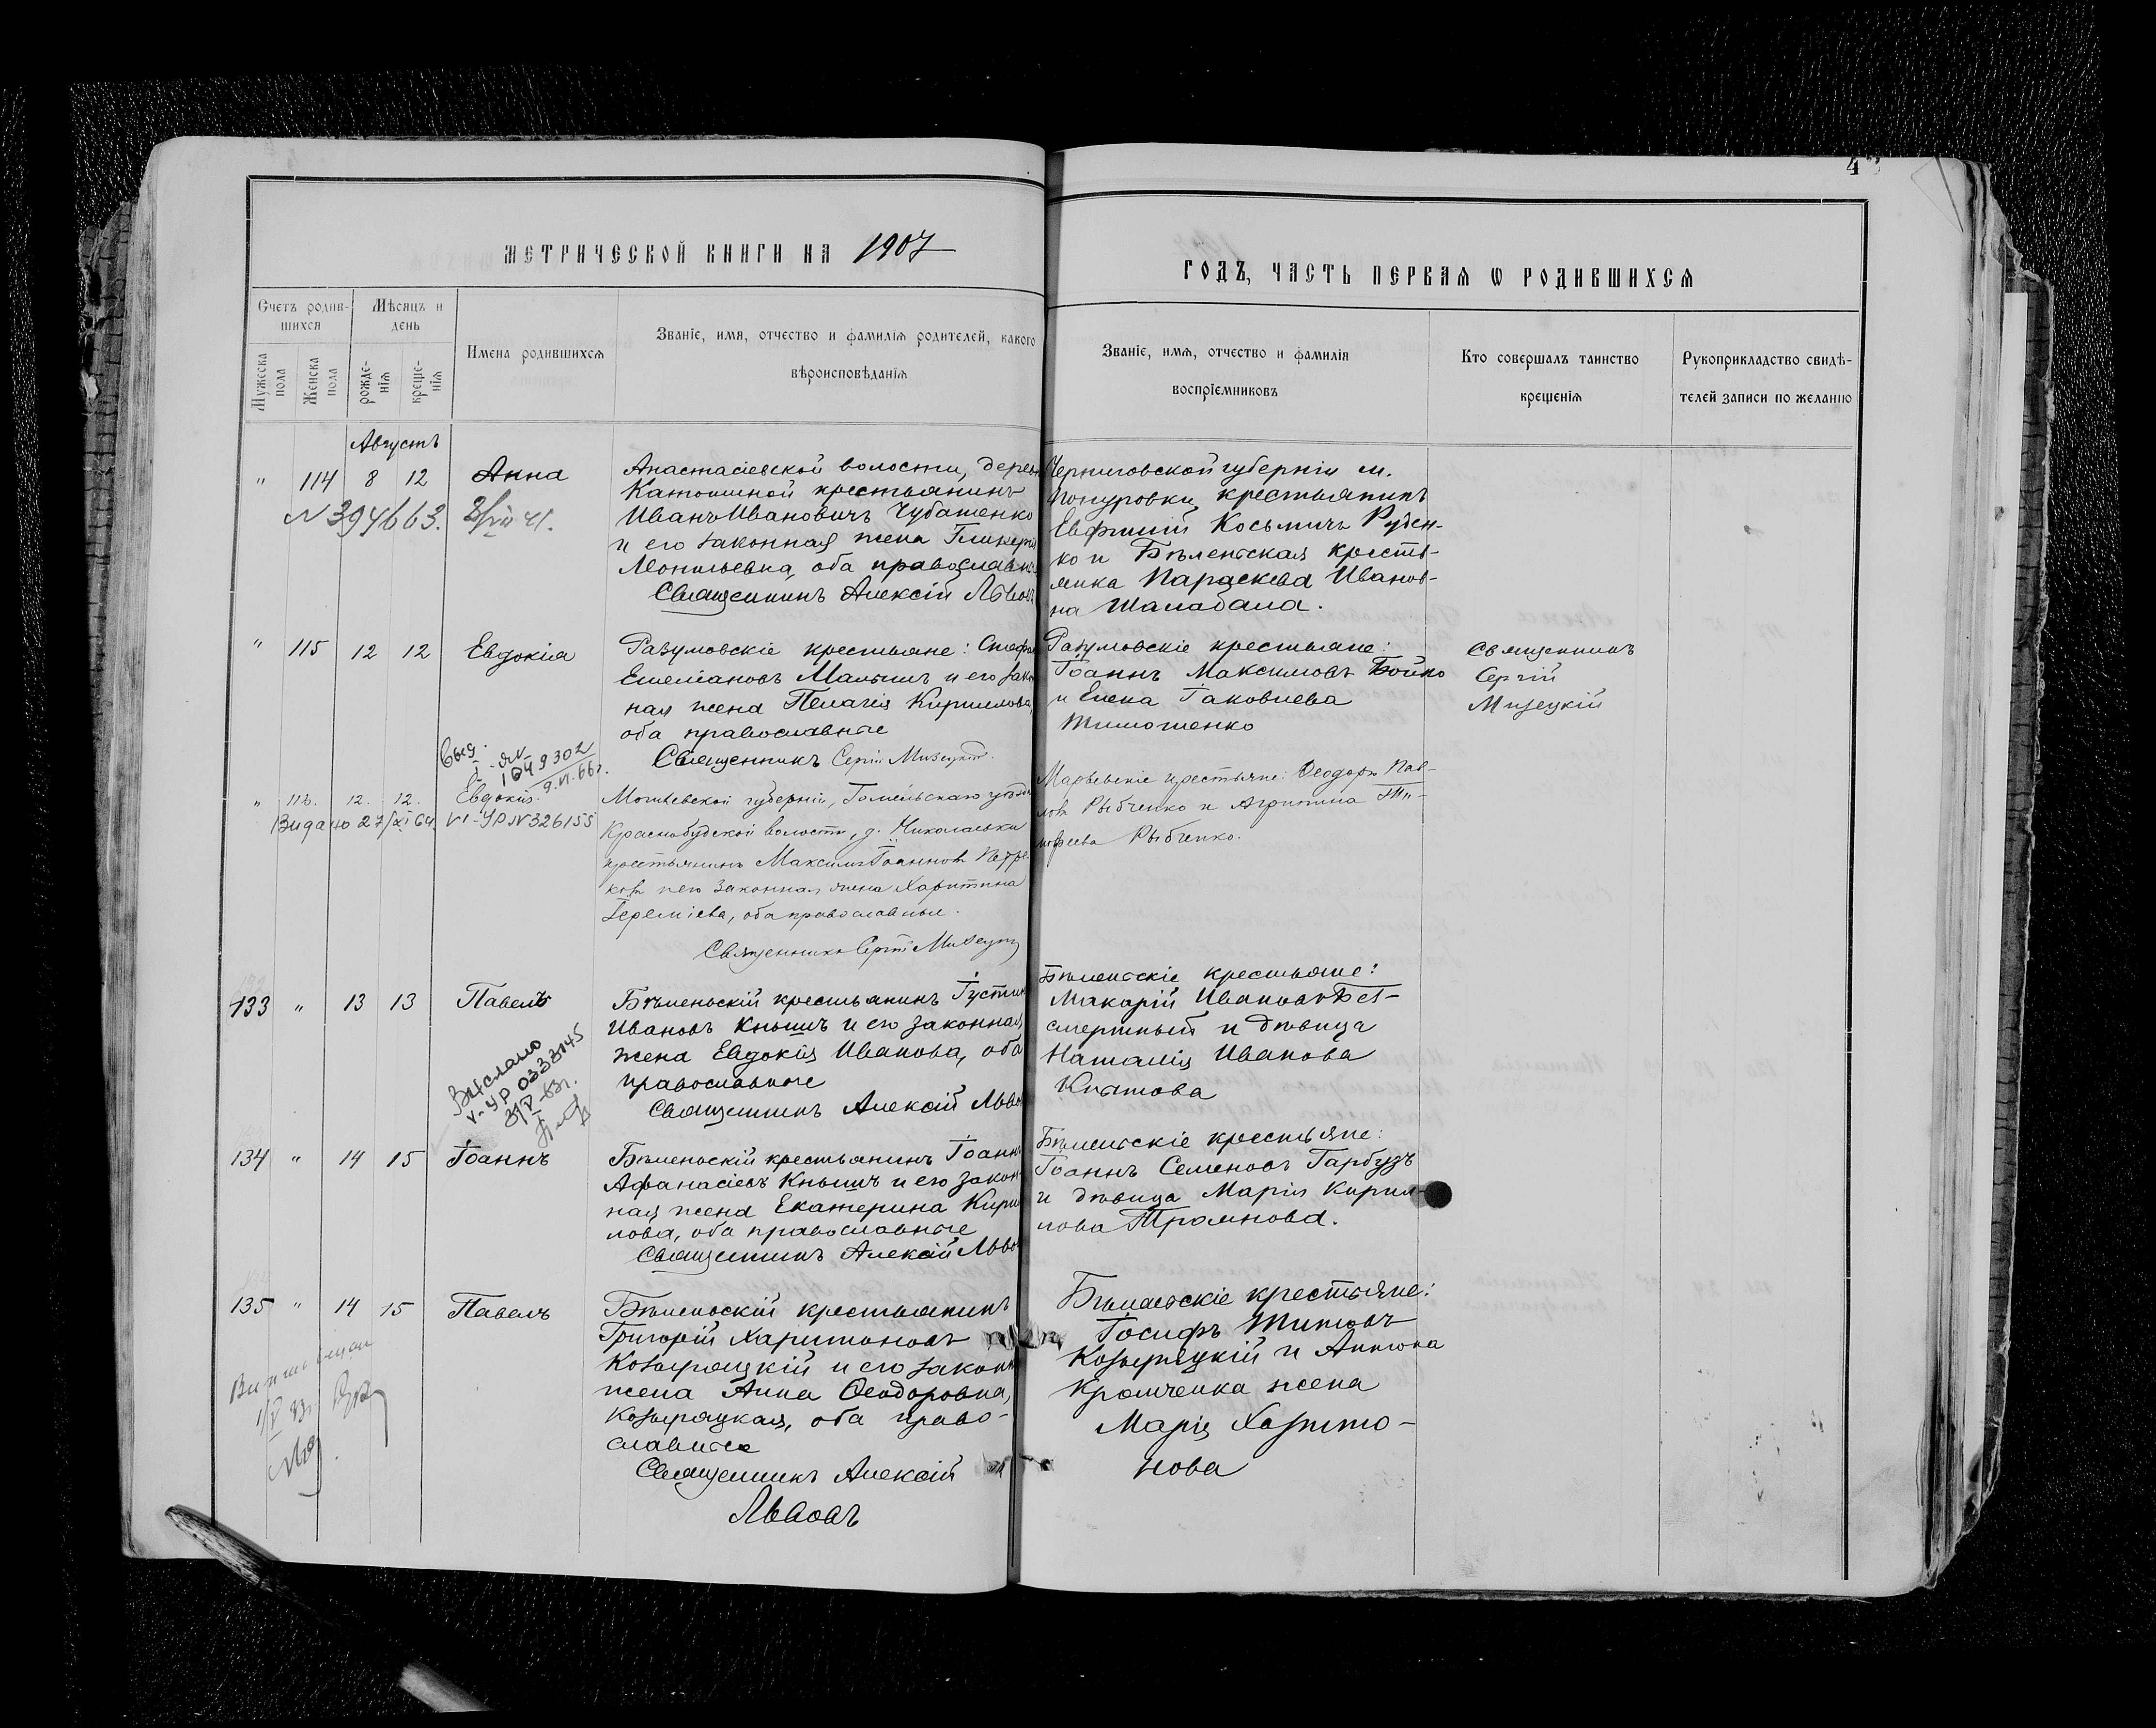 4
МЕТРИЧЕСКОЙ КНИГИ НА 1907
ГОДЪ, ЧАСТЬ ПЕРВАЯ Ѡ РОДИВШИХСЯ
Счетъ родив-
шихся
Мѣсяцъ и
день
Мужеска
пола
Женска
пола
рожде-
нія
креще-
нія
Имена родившихся
Званіе, имя, отчество и фамилія родителей, какого
вѣроисповѣданія
Званіе, имя, отчество и фамилія
воспріемниковъ
Кто совершалъ таинство
крещенія
Рукоприкладство свидѣ-
телей записи по желанію
Августъ
" 114 8 12 Анна
N 394663.
Анастасіевской волости, дерев
крестьянинъ
Иванъ Ивановичъ Чубатенко
и его законная жена Гликерія
оба православные
Священникъ Алексій Львовъ
Черниговской губерніи м.
крестьянинъ
Евфимій Косьмичъ Руден-
ко и Бѣленьская кресть-
янка Параскева Иванов-
на Шаладала.
" 115 12 12 Евдокія
Разумовскіе крестьяне: Стефан
Емеліановъ и его закон
ная жена Пелагія Кириллова,
оба православные
Священникъ Сергій Мизецкій.
Разумовскіе крестьяне:
Іоаннъ Максимовъ Бойко
и Елена Іаковлева
Тимошенко
Священникъ
Сергій
Мизецкій
1049302
9.VI.66г.
" 116. 12. 12. Евдокія.
Видано 27/XI 64 VI-УР N 326155
Могилевской губерніи, Гомельскаго уѣзда
Краснобудской волости, д. Николаевки
крестьянинъ Максимъ Іоанновъ
ковъ и его законная жена Харитина
Іереміева, оба православные.
Священникъ Сергій Мизецкій
Марьевскіе крестьяне: Ѳеодоръ Пав-
ловъ Рыбченко и Агрипина Ти-
моѳеева Рыбченко.
133 " 13 13 Павелъ
Выслано
V-УР 0333145
3/V-63г.
Бѣленьскій крестьянинъ Іустинъ
Ивановъ Кнышъ и его законная
жена Евдокія Иванова, оба
православные
Священникъ Алексій Львовъ
Бѣленьскіе крестьяне:
Макарій Ивановъ Без-
смертный и дѣвица
Наталія Иванова
134 " 14 15 Іоаннъ
Бѣленьскій крестьянинъ Іоаннъ
Афанасіевъ Кнышъ и его закон
ная жена Екатерина Кирил
лова, оба православные
Священникъ Алексій Львовъ
Бѣленьскіе крестьяне:
Іоаннъ Семеновъ Гарбузъ
и дѣвица Марія Кирил-
лова Троянова.
135 " 14 15 Павелъ
Бѣленьскій крестьянинъ
Григорій Харитоновъ
Козыряцкій и его законн
жена Анна Ѳеодоровна,
Козыряцкая, оба право-
славные
Священникъ Алексій
Львовъ
Бѣленьскіе крестьяне:
Іосифъ Титовъ
Козыряцкій и Антона
Кромченка жена
Марія Харито-
нова